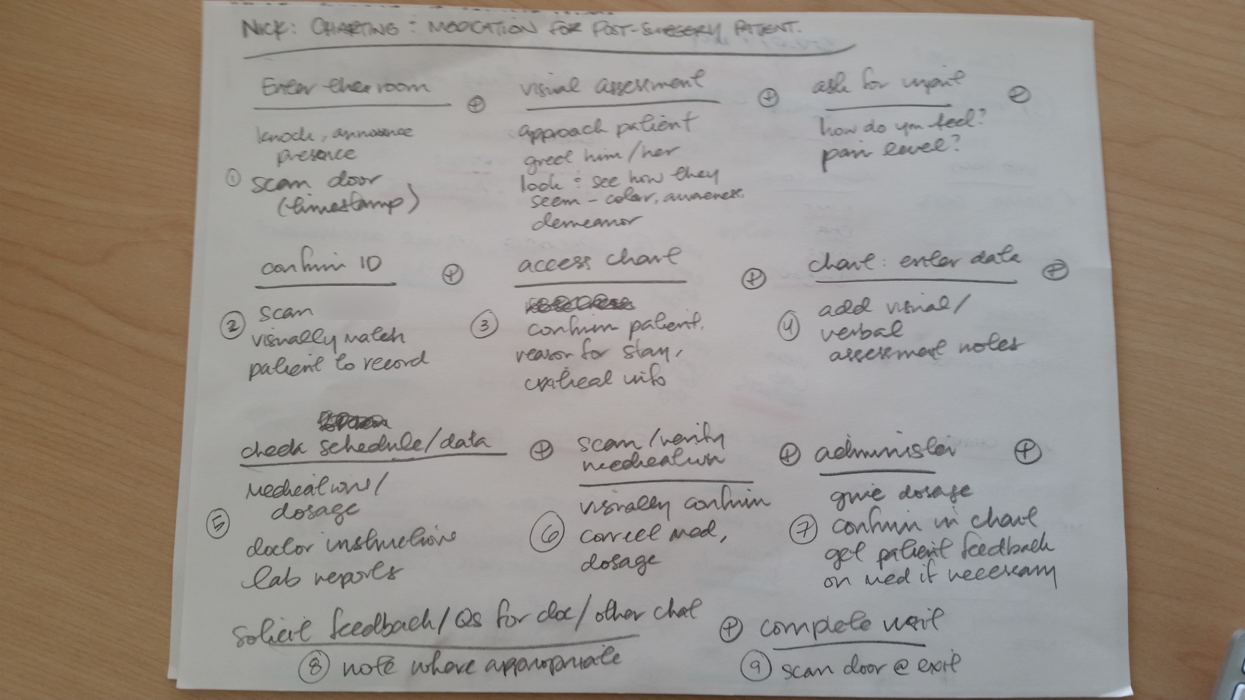 NICK: CHARTING: MEDICATION FOR POST-SURGERY PATIENT.
Enter the room
knock, announce
presence
① scan door
(timestamp)
visual assessment
approach patient
greet him/her
look: see how they
seem - color, awareness,
demeanor
ask for input
how do you feel?
pain level?
confirm ID
② scan
visually match
patient to record
access chart
③ confirm patient,
reason for stay,
critical info
chart: enter data
④ add visual/
verbal
assessment notes
check schedule/data
⑤ medications/
dosage
doctor instructions
lab reports
scan/verify
medication
⑥ visually confirm
correct med,
dosage
administer
give dosage
⑦ confirm in chart
get patient feedback
on med if necessary
solicit feedback/Qs for doc/other chat
⑧ note where appropriate
complete visit
⑨ scan door @ exit